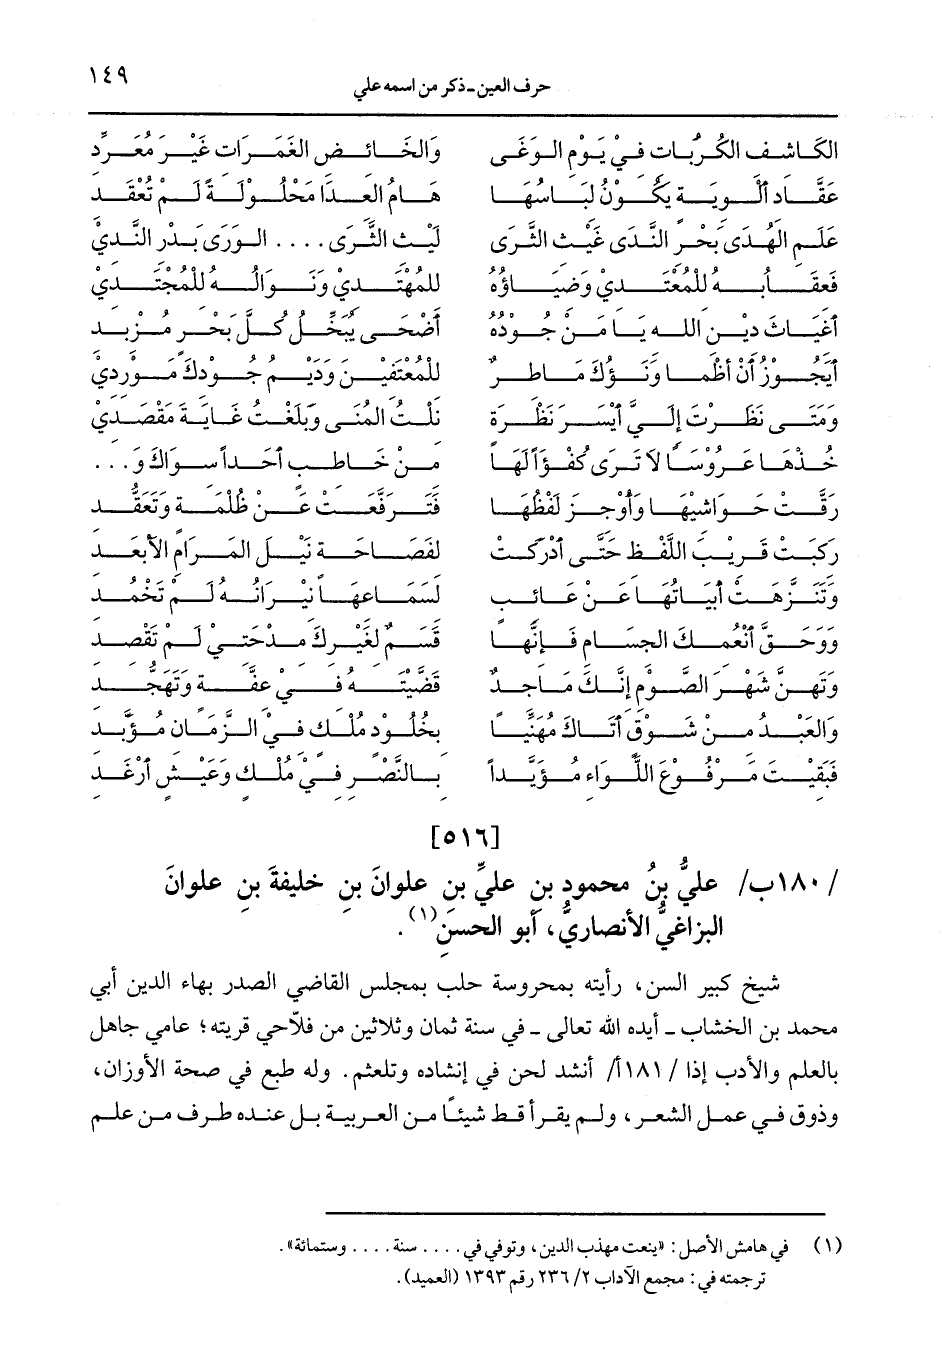 حرف العين - ذكر من اسمه علي ١٤٩
الكاشف الكربات في يوم الوغى والخائض الغمرات غير معرد
عقاد ألوية يكون لباسها هام العدا محلولة لم تعقد
علم الهدى بحر الندى غيث الثرى ليث الشرى .... الورى بدر الندي
فعقابه للمعتدي وضياؤه للمهتدي ونواله للمجتدي
أغياث دين الله يا من جوده أضحى يبخل كل بحر مزبد
أيجوز أن أظما ونوؤك ماطر للمعتفين وديم جودك موردي
ومتى نظرت إلي أيسر نظرة نلت المنى وبلغت غاية مقصدي
خذها عروسا لا ترى كفؤا لها من خاطب أحدا سواك و...
رقت حواشيها وأوجز لفظها فترفعت عن ظلمة وتعقد
ركبت قريب اللفظ حتى أدركت لفصاحة نيل المرام الأبعد
وتنزهت أبياتها عن عائب لسماعها نيرانه لم تخمد
ووحق أنعمك الجسام فإنها قسم لغيرك مدحتي لم تقصد
وتهن شهر الصوم إنك ماجد قضيته في عفة وتهجد
والعبد من شوق أتاك مهنيا بخلود ملك في الزمان مؤبد
فبقيت مرفوع اللواء مؤيدا بالنصر في ملك وعيش أرغد
[٥١٦]
/١٨٠ب/ عليُّ بنُ محمودِ بنِ عليِّ بنِ علوانَ بنِ خليفةَ بنِ علوانَ
البزاغيُّ الأنصاريُّ، أبو الحسنِ(١).
شيخ كبير السن، رأيته بمحروسة حلب بمجلس القاضي الصدر بهاء الدين أبي
محمد بن الخشاب - أيده الله تعالى - في سنة ثمان وثلاثين من فلاّحي قريته؛ عامي جاهل
بالعلم والأدب إذا /١٨١أ/ أنشد لحن في إنشاده وتلعثم. وله طبع في صحة الأوزان،
وذوق في عمل الشعر، ولم يقرأ قط شيئاً من العربية بل عنده طرف من علم
(١) في هامش الأصل: «ينعت مهذب الدين، وتوفي في .... سنة .... وستمائة».
ترجمته في: مجمع الآداب ٢/ ٢٣٦ رقم ١٣٩٣ (العميد).